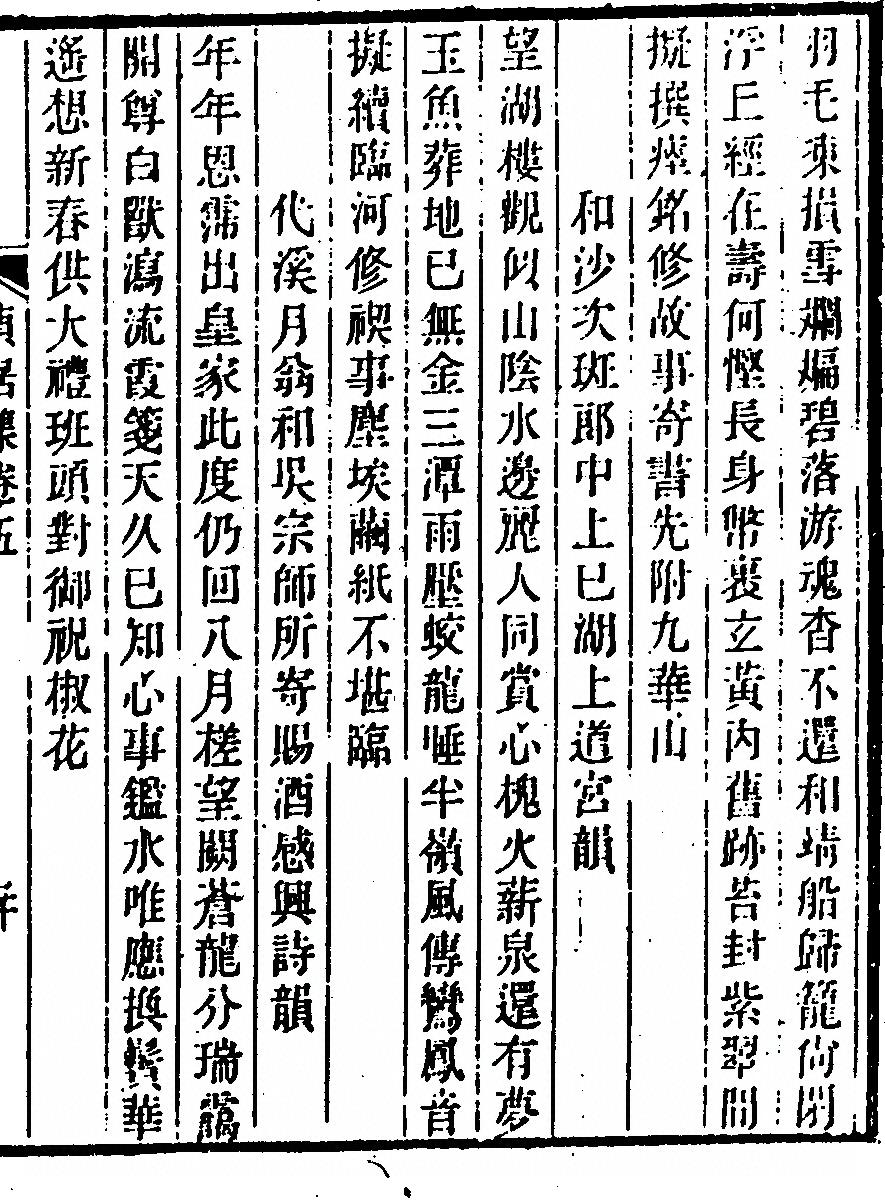 羽毛凍損雪斕㻞碧落游魂杳不還和靖船歸籠尙閉
浮丘經在壽何慳長身幣裹玄黃內舊跡苔封紫翠間
擬撰瘞銘修故事寄書先附九華山
和沙次班郎中上巳湖上道宮韻
望湖樓觀似山陰水邊麗人同賞心槐火薪泉還有夢
玉魚葬地已無金三潭雨壓蛟龍睡半嶺風傳鸞鳳音
擬續臨河修禊事塵埃繭紙不堪臨
代溪月翁和吳宗師所寄賜酒感興詩韻
年年恩霈出皇家此度仍回八月槎望闕蒼龍分瑞靄
開尊白獸瀉流霞箋天久已知心事鑑水唯應換鬢華
遙想新春供大禮班頭對御祝椒花
貞居集卷五